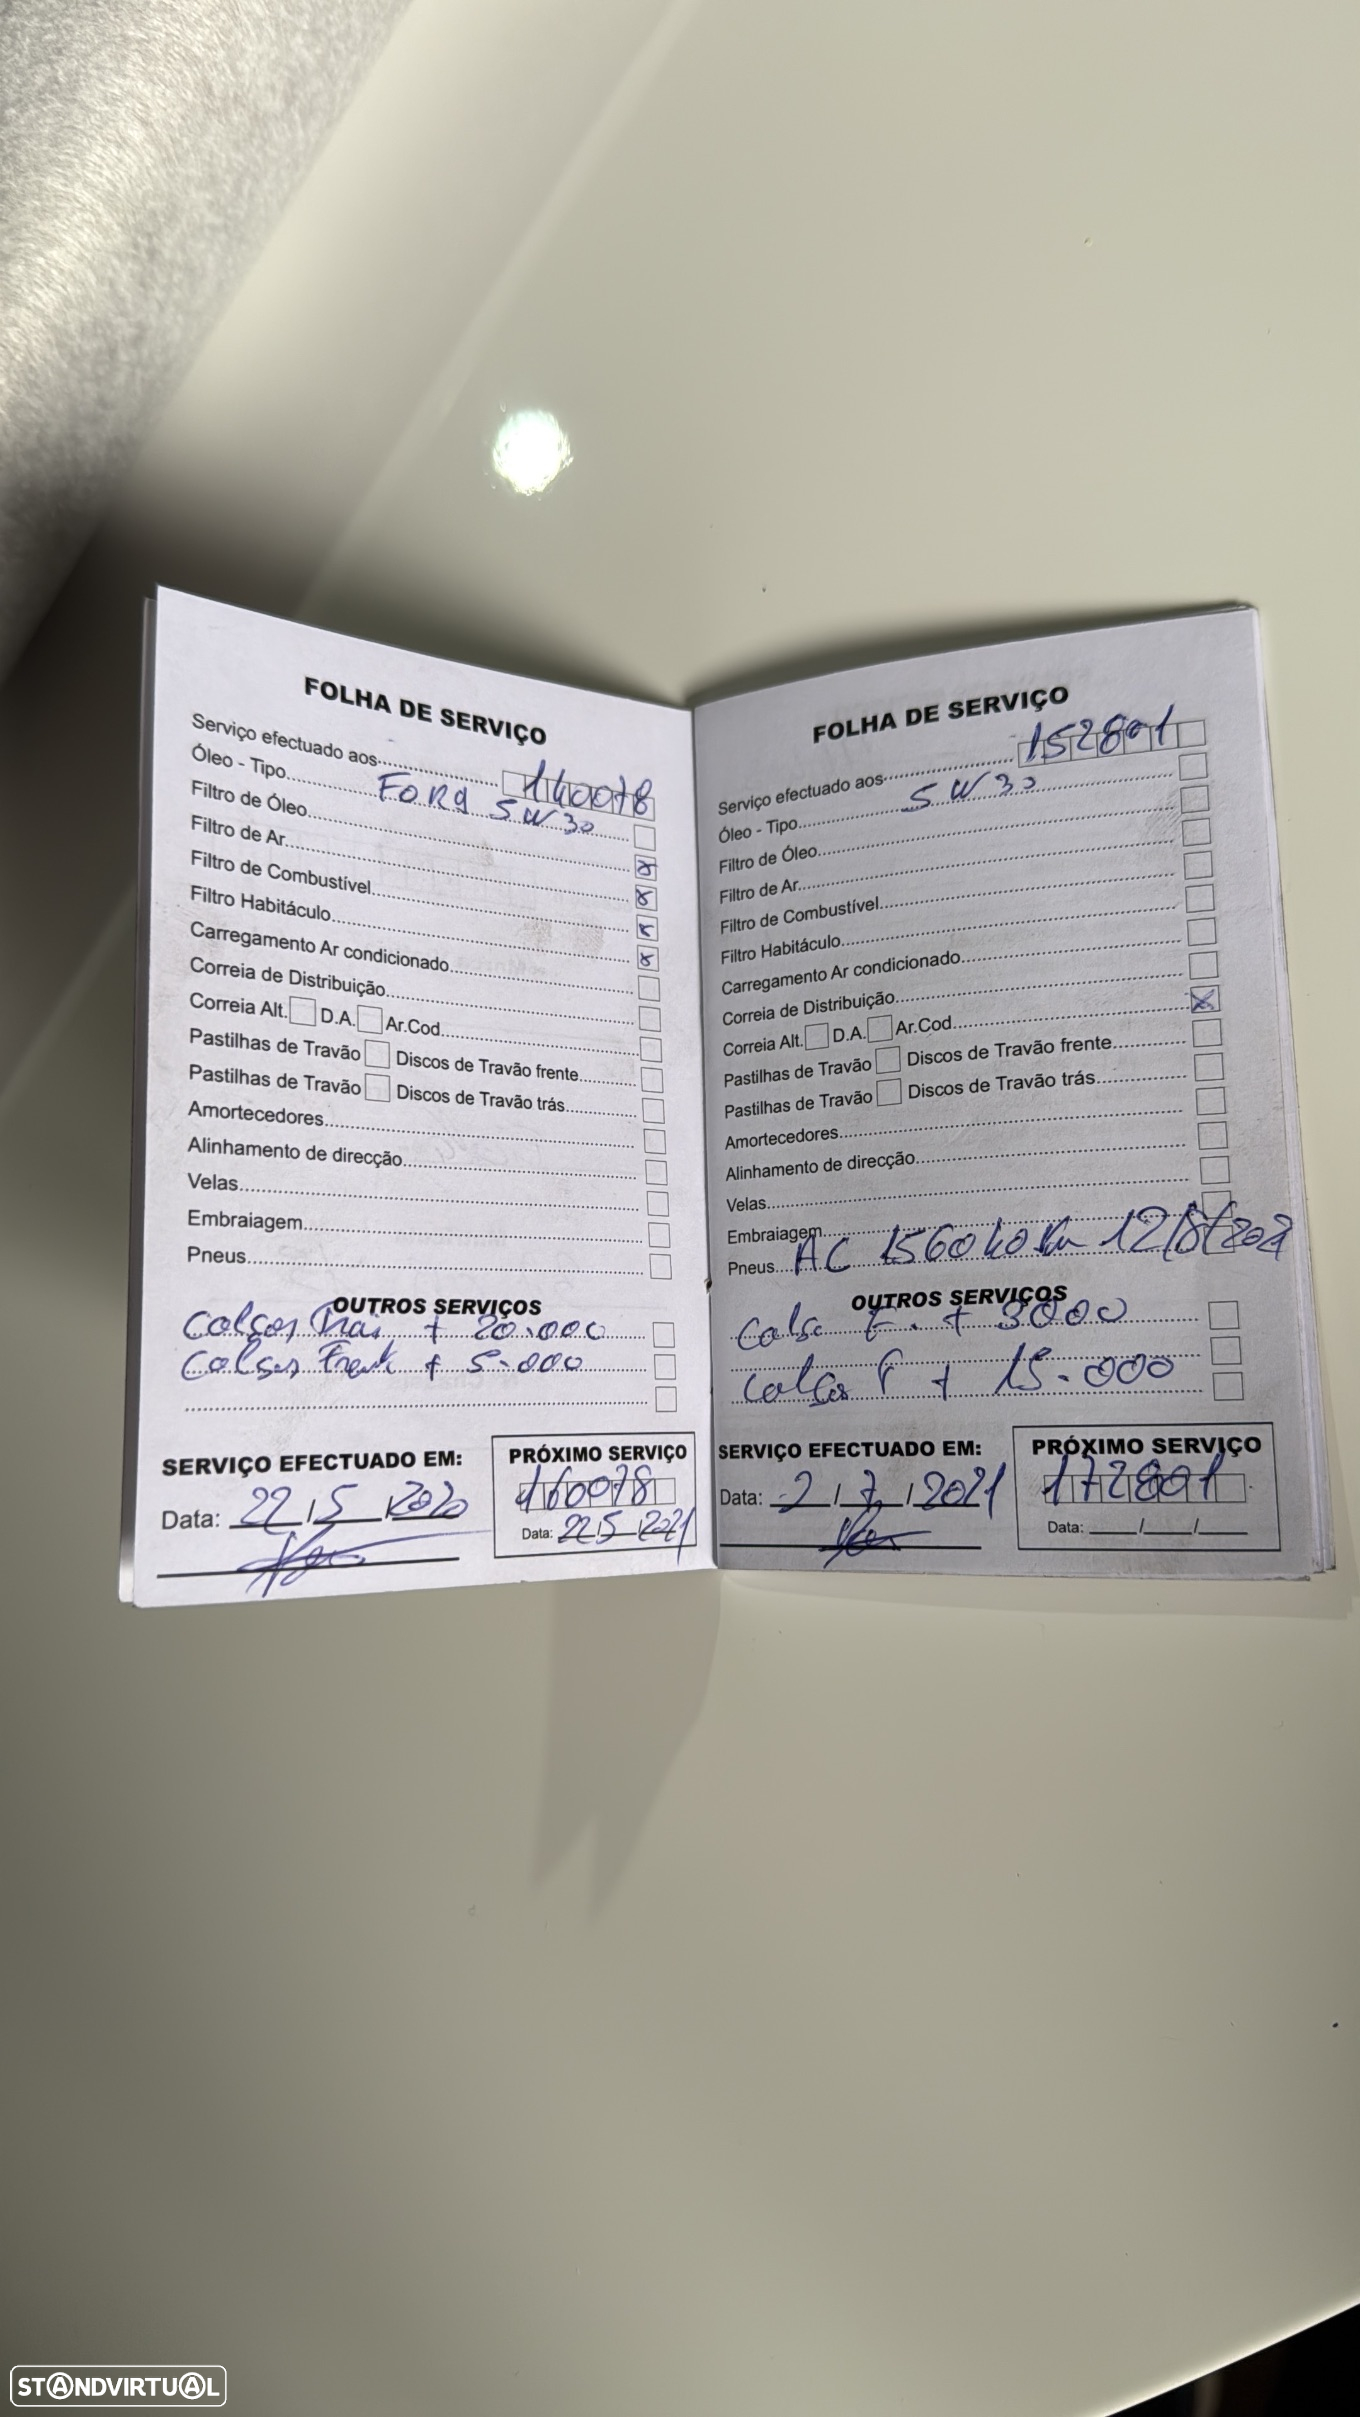 FOLHA DE SERVIÇO
Serviço efectuado aos 140078
Óleo - Tipo FORD 5W30
Filtro de Óleo
Filtro de Ar
Filtro de Combustível
Filtro Habitáculo
Carregamento Ar condicionado
Correia de Distribuição
Correia Alt. D.A. Ar.Cod
Pastilhas de Travão Discos de Travão frente
Pastilhas de Travão Discos de Travão trás
Amortecedores
Alinhamento de direcção
Velas
Embraiagem
Pneus
OUTROS SERVIÇOS
Calços Trás + 20.000
Calços Frent + 5.000
SERVIÇO EFECTUADO EM:
Data: 22/5/2020
PRÓXIMO SERVIÇO
160078
Data: 22/5/2021
FOLHA DE SERVIÇO
Serviço efectuado aos 152801
Óleo - Tipo 5W30
Filtro de Óleo
Filtro de Ar
Filtro de Combustível
Filtro Habitáculo
Carregamento Ar condicionado
Correia de Distribuição
Correia Alt. D.A. Ar.Cod
Pastilhas de Travão Discos de Travão frente
Pastilhas de Travão Discos de Travão trás
Amortecedores
Alinhamento de direcção
Velas
Embraiagem
Pneus AC 156040 km
OUTROS SERVIÇOS
+ 3000
Calços + 15.000
SERVIÇO EFECTUADO EM:
Data: 2/7/2021
PRÓXIMO SERVIÇO
172801
Data: / /
STANDVIRTUAL